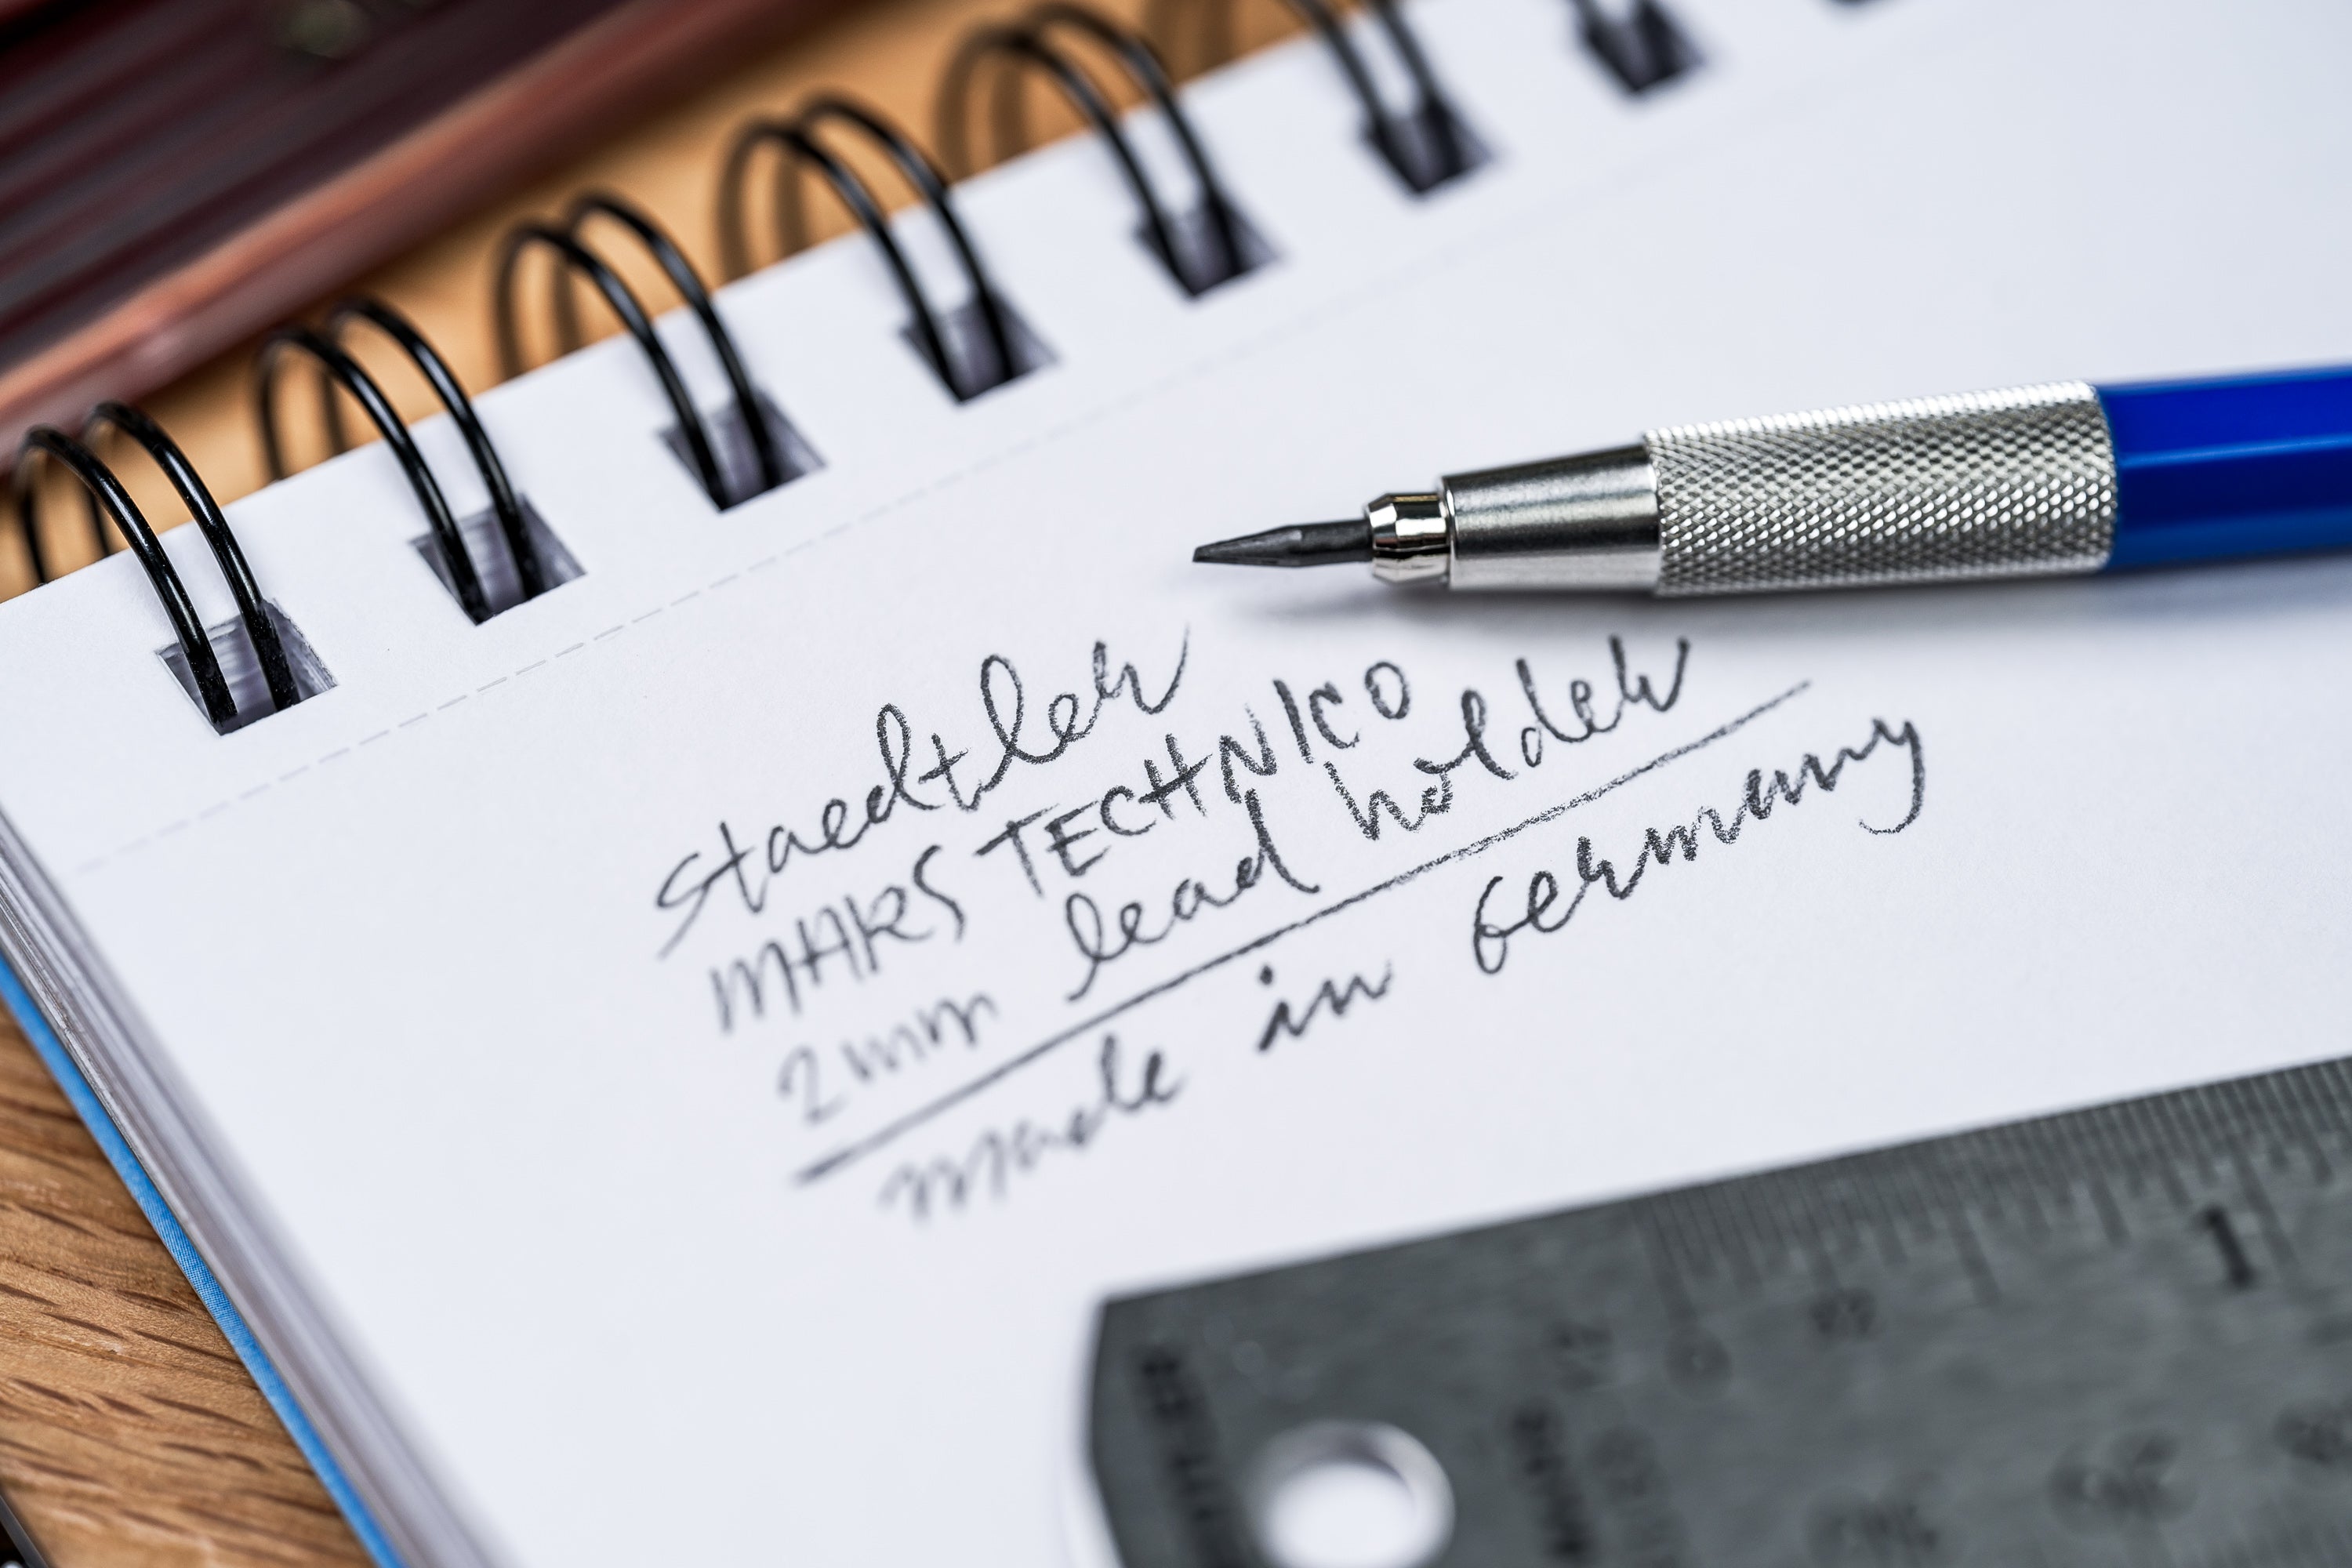 staedtler
MARS TECHNICO
2mm lead holder
made in Germany
1